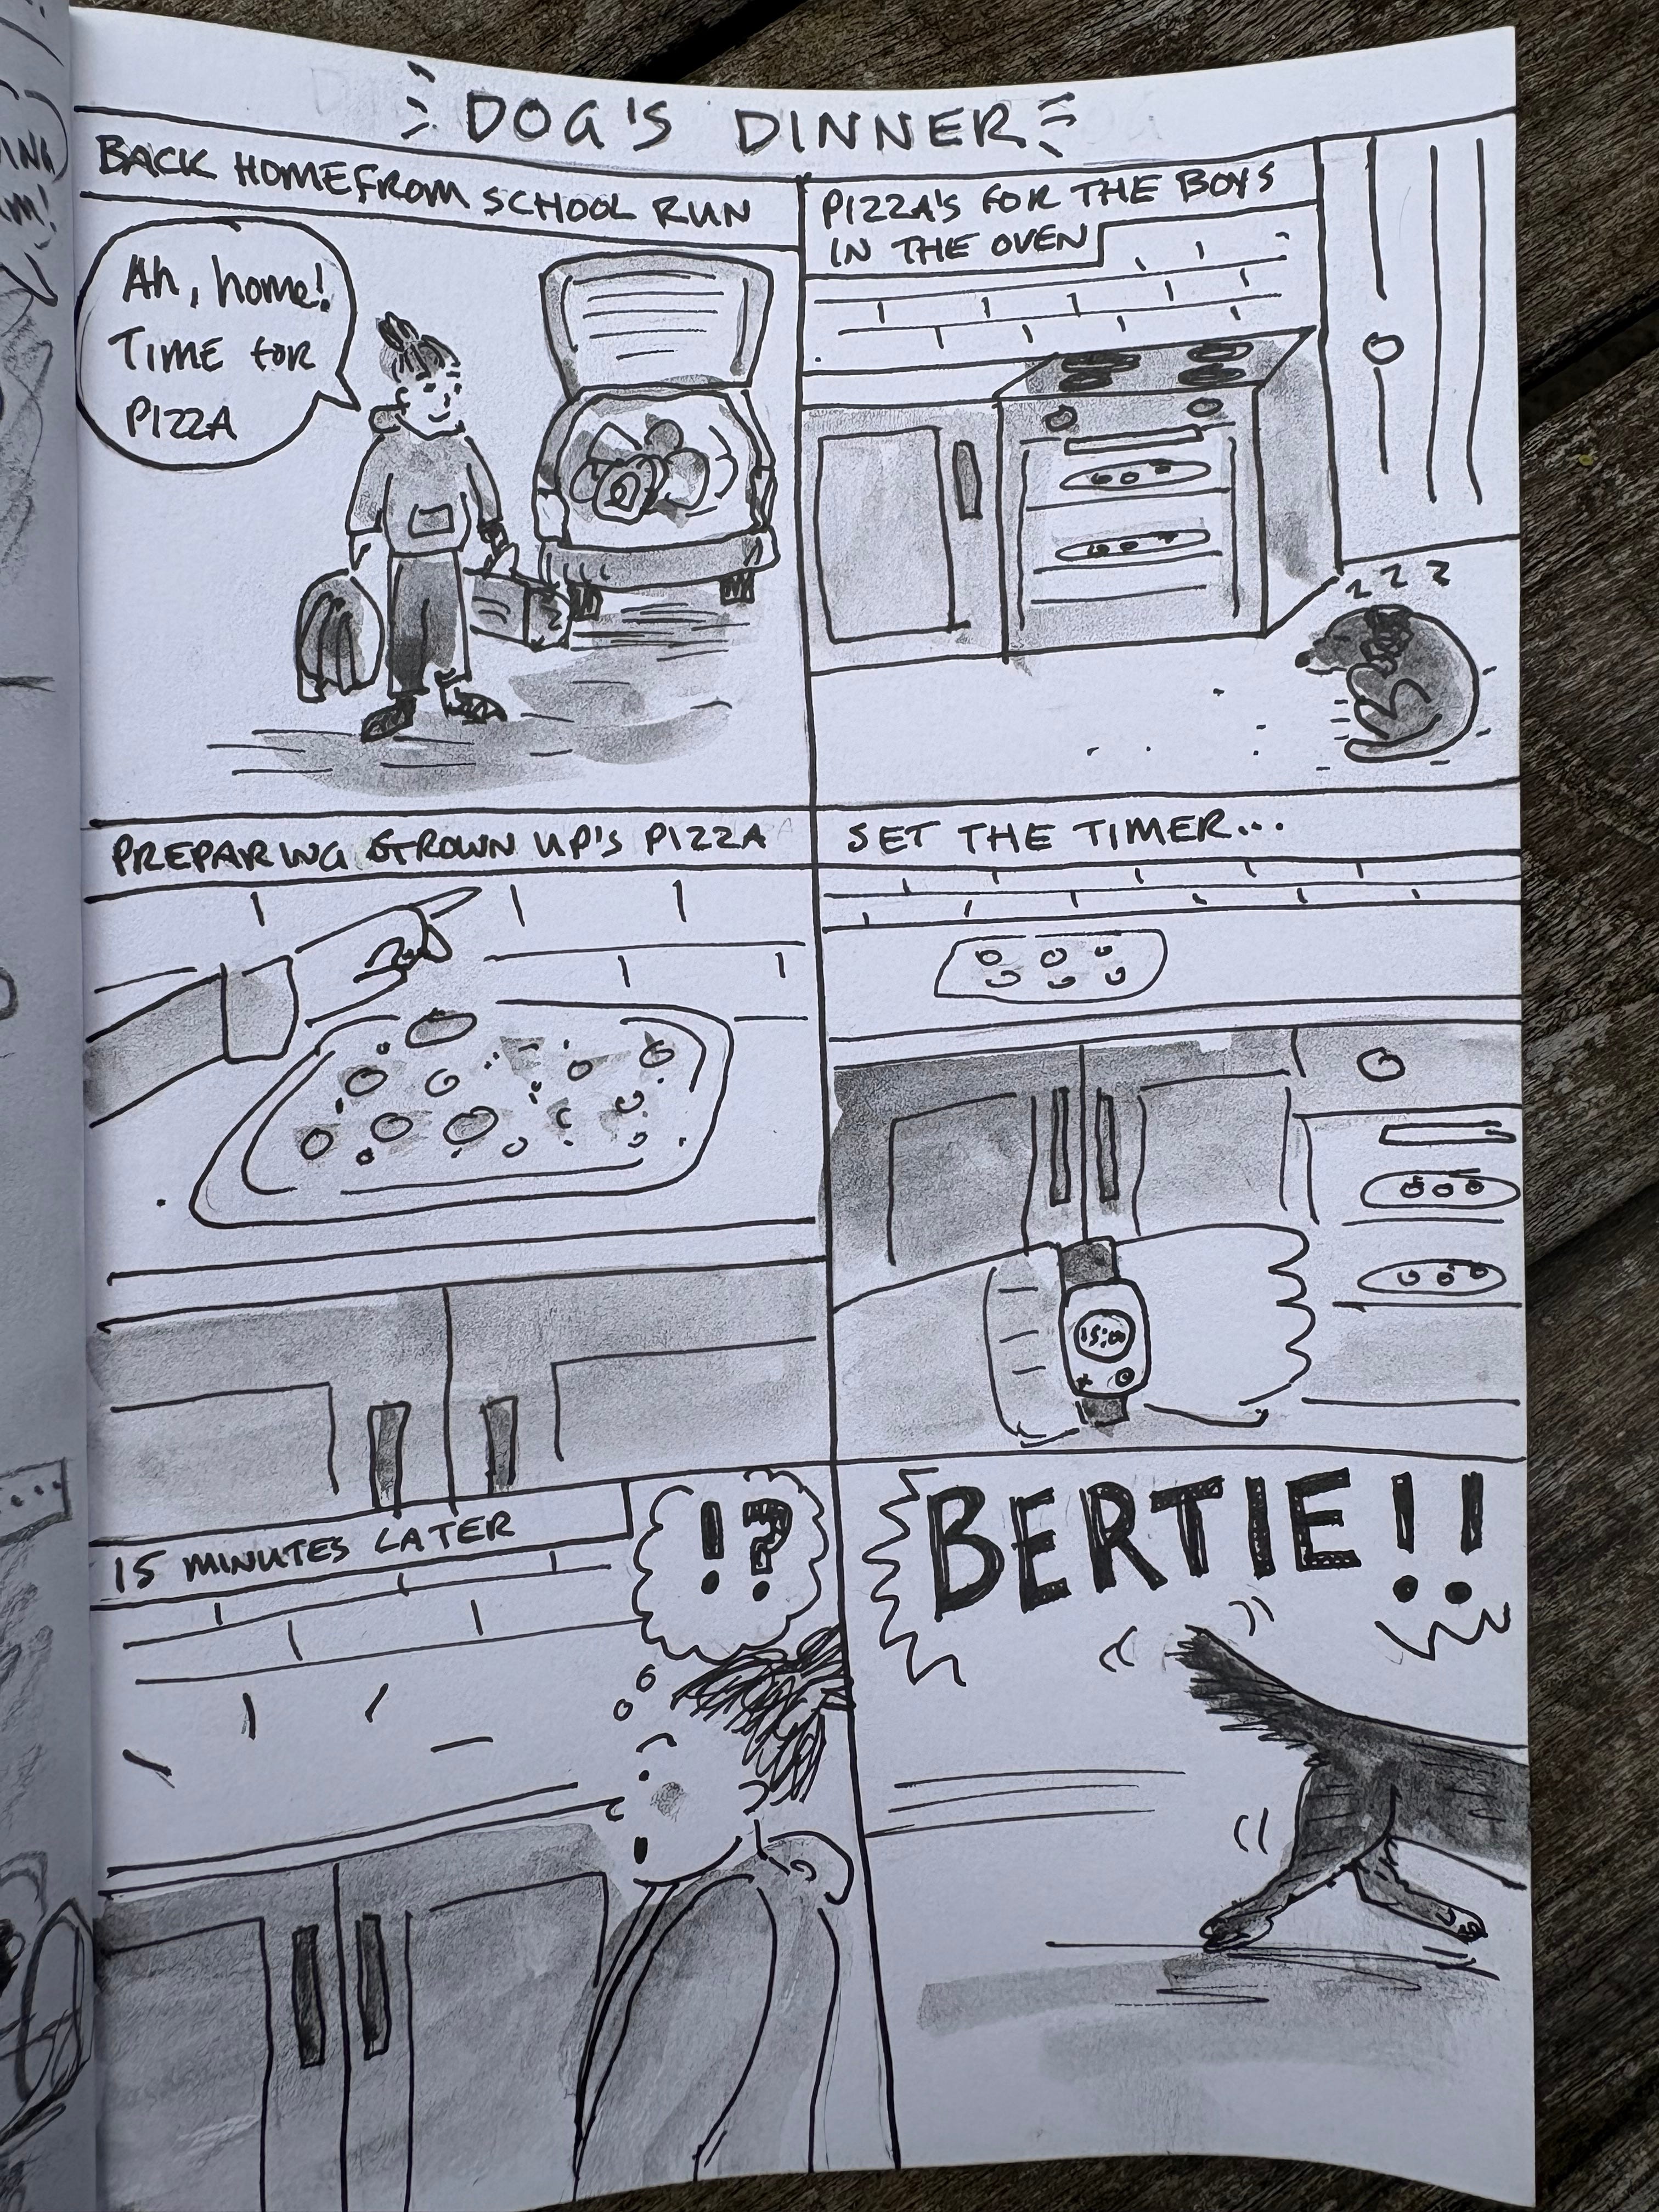 DOG'S DINNER
BACK HOME FROM SCHOOL RUN
Ah, home!
TIME FOR
PIZZA
PIZZA'S FOR THE BOYS
IN THE OVEN
z z z
PREPARING GROWN UP'S PIZZA
SET THE TIMER...
15:00
15 MINUTES LATER
!?
BERTIE!!